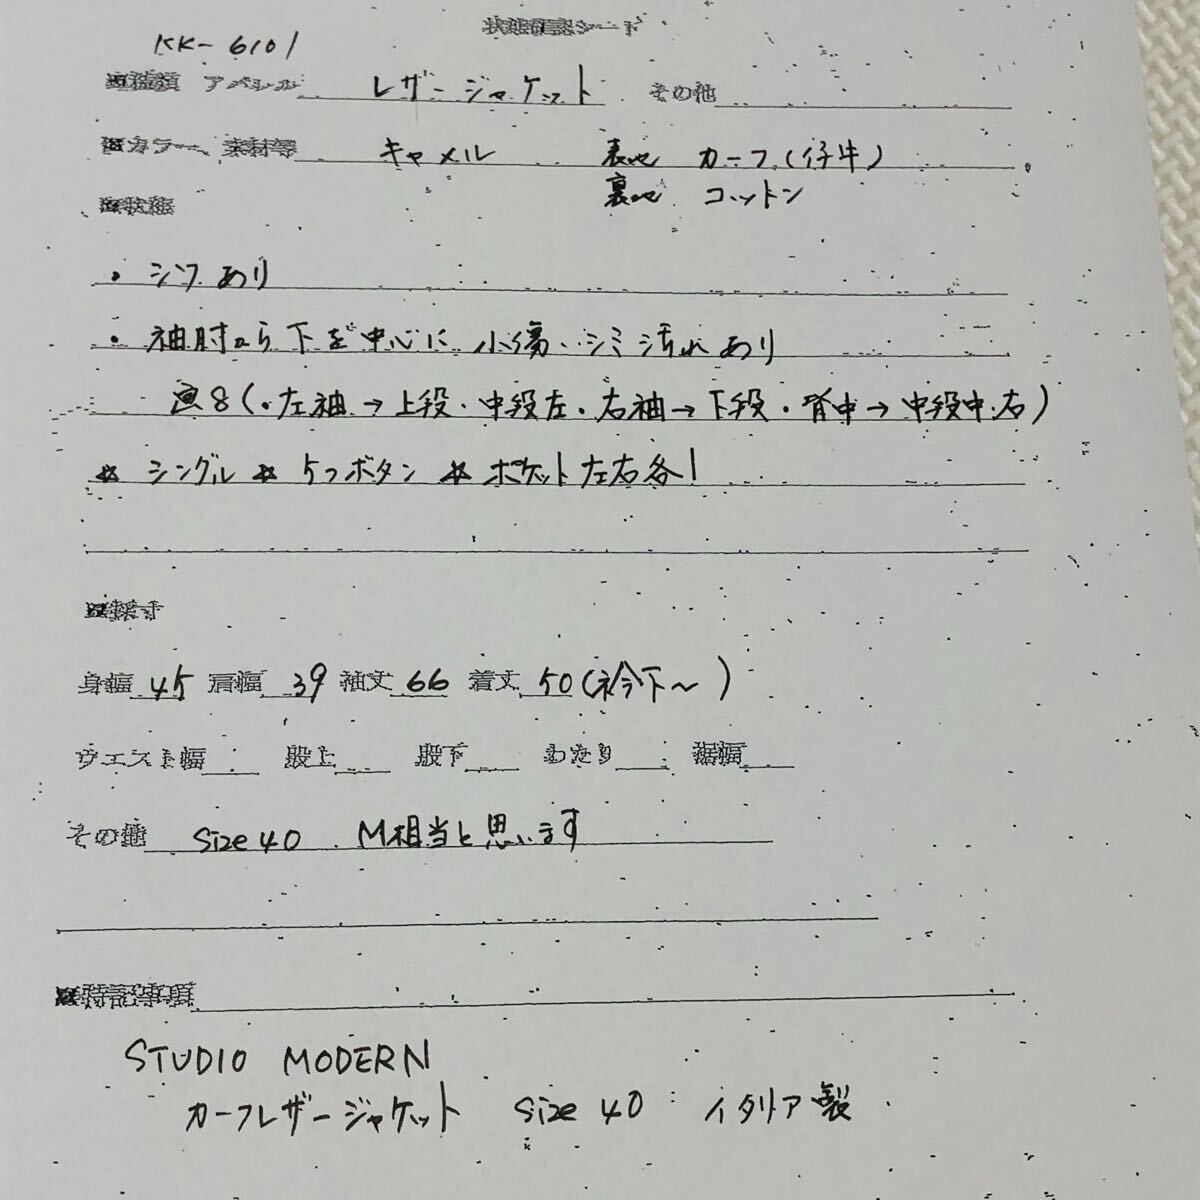 状態確認シート
KK-6101
■種類 アパレル レザージャケット その他
■カラー、素材等 キャメル 表地 カーフ(仔牛)
裏地 コットン
■状態
・シワあり
・袖肘から下を中心に小傷、シミ汚れあり
画8(・左袖→上段・中段左・右袖→下段・背中→中段中、右)
☆シングル☆5つボタン☆ポケット左右各1
■採寸
身幅 45 肩幅 39 袖丈 66 着丈 50(衿下〜)
ウエスト幅 股上 股下 わたり 裾幅
その他 size 40 M相当と思います
■特記事項
STUDIO MODERN
カーフレザージャケット size 40 イタリア製